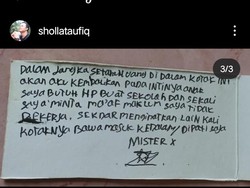 shollataufiq
3/3
DALAM JANGKA SETAHUN UANG DI DALAM KOTAK INI
AKAN AKU KEMBALIKAN PADA INTINYA ANAK
SAYA BUTUH HP BUAT SEKOLAH DAN SEKALI
SAYA MINTA MA'AF MAKLUM SAYA TIDAK
BEKERJA. SEKEDAR MENGINGATKAN LAIN KALI
KOTAKNYA BAWA MASUK KEDALAM
MISTER X